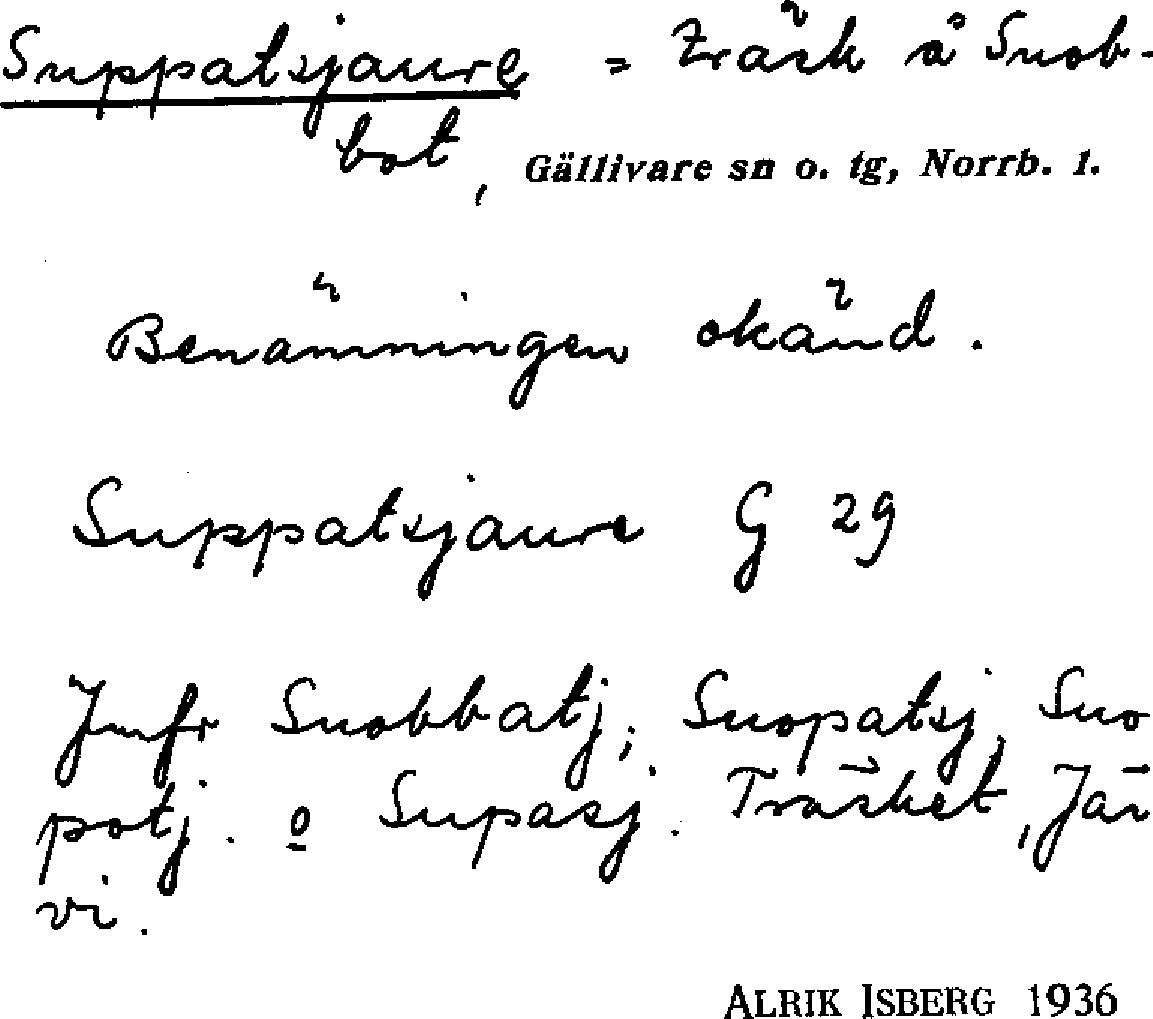 Suppatsjaure = träsk å Suob-
bat, Gällivare sn o. tg, Norrb. l.
Benämningen okänd.
Suppatsjaure G 29
Jmfr Suobbatj; Suopatsj, Suo
potj. o Supasj. Träsket, Jär
vi.
ALRIK ISBERG 1936